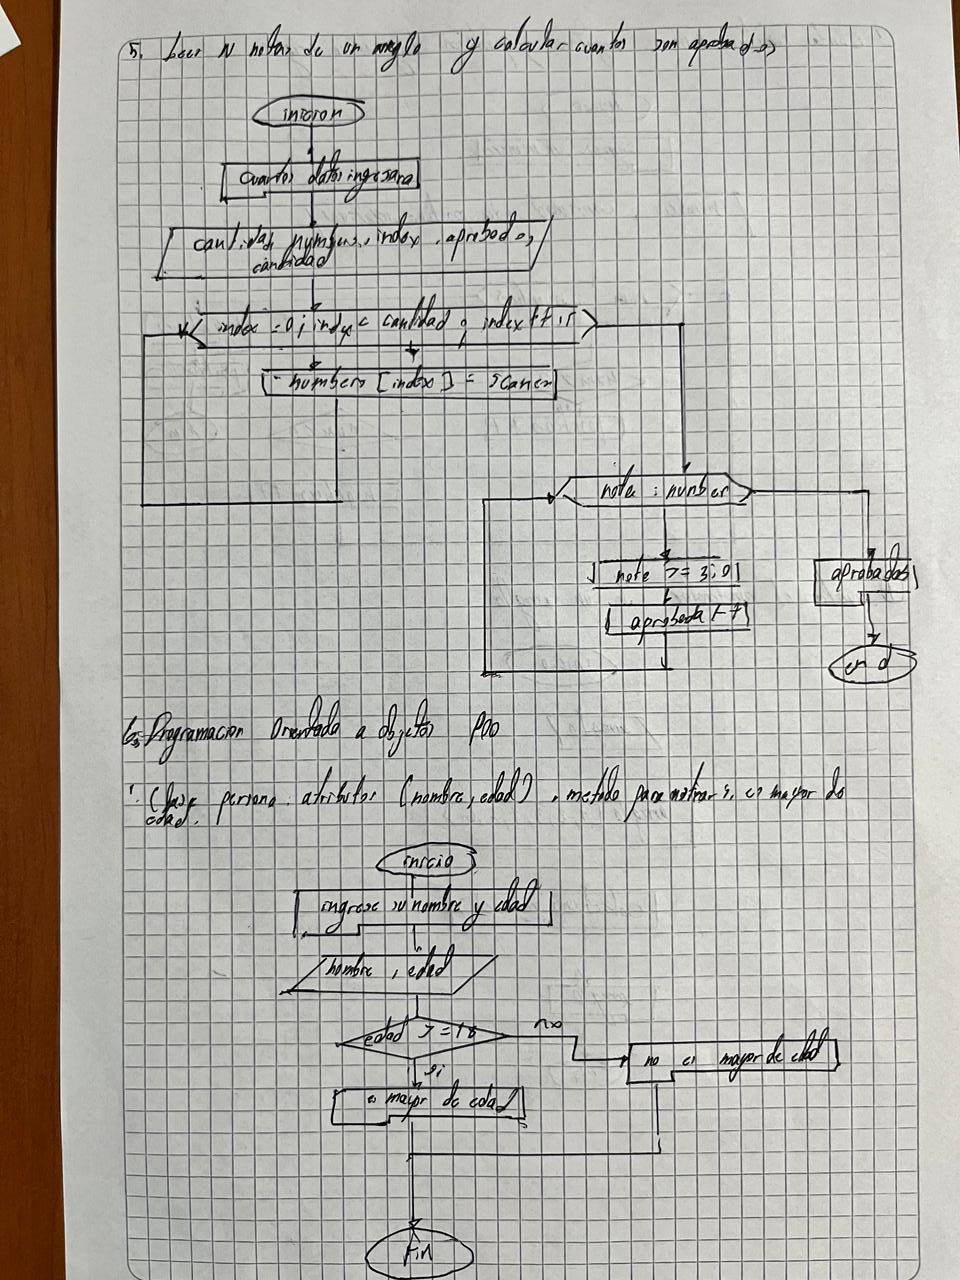 5. Leer N notas de un arreglo y calcular cuantos son aprobados
inicion
cuantos datos ingresara
cantidad, numbers, index, aprobado,
cantidad
index = 0; index < cantidad; index ++
numbers [index] = scaner
note : number
note >= 3.0
aprobada ++
aprobadas
end
6. Programacion Orientada a objetos POO
1. Clase persona. atributos (nombre, edad), metodo para mostrar si es mayor de
edad.
inicio
ingrese su nombre y edad
nombre, edad
edad >= 18
no
si
no es mayor de edad
es mayor de edad
Fin